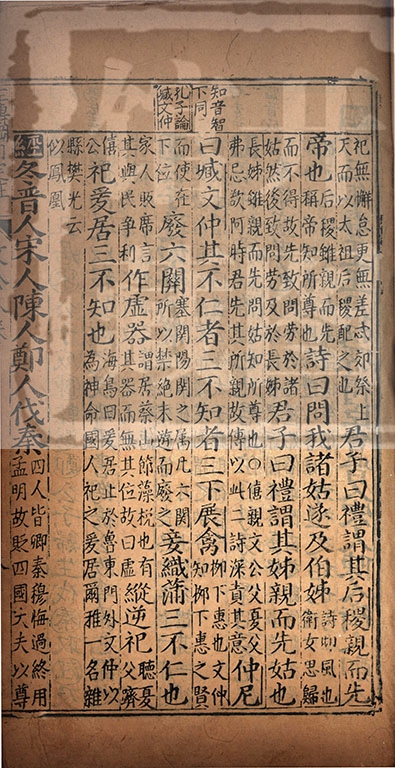 知音智
下同
孔子論
臧文仲
祀無懈怠更無差忒郊祭上
天而以太祖后稷配之也
君子曰禮謂其后稷親而先
帝也
后稷雖親而先
稱帝知所尊也
詩曰問我諸姑遂及伯姊
詩邶風也
衛女思歸
而不得故先致問勞於諸
姑然後致問勞及於長姊
君子曰禮謂其姊親而先姑也
長姊雖親而先問姑知所尊也○僖親文公父夏父
弗忌欲阿時君先其所親故傳以此二詩深責其意
仲尼
曰臧文仲其不仁者三不知者三下展禽
柳下惠也文仲
知柳下惠之賢
而使在
下位
廢六關
塞關陽關之屬凡六關
所以禁絶末游而廢之
妾織蒲三不仁也
家人販席言
其與民爭利
作虛器
謂居蔡山節藻梲也有
其器而無其位故曰虛
縱逆祀
聽夏
父躋
僖
公
祀爰居三不知也
海鳥曰爰居止於魯東門外文仲以
為神命國人祀之爰居爾雅一名雜
縣樊光云
似鳳凰
經冬晉人宋人陳人鄭人伐秦
四人皆卿秦穆悔過終用
孟明故貶四國大夫以尊